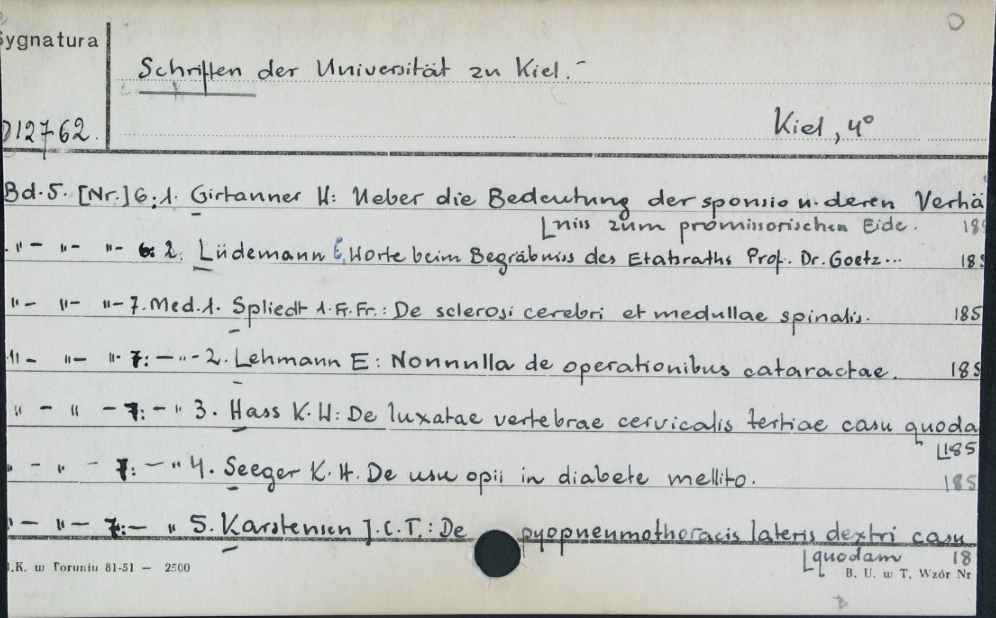 Sygnatura
Schriften der Universität zu Kiel.-
D12762.
Kiel, 4°
Bd.5. [Nr.]6:1. Girtanner W: Ueber die Bedeutung der sponsio u. deren Verhä
niss zum promissorischen Eide. 185
" - " - " - 6: 2. Lüdemann C, Worte beim Begräbniss des Etatsraths Prof. Dr. Goetz... 185
" - " - " - 7. Med. 1. Spliedt 1. Fr. Fr.: De sclerosi cerebri et medullae spinalis. 185
" - " - " - 7: - " - 2. Lehmann E: Nonnulla de operationibus cataractae. 185
" - " - 7: - " 3. Hass K.W: De luxatae vertebrae cervicalis tertiae casu quoda
185
" - " - 7: - " 4. Seeger K.H. De usu opii in diabete mellito. 185
" - " - 7: - " 5. Karstensen J.C.T.: De pyopneumothoracis lateris dextri casu
quodam 18
.K. w Toruniu 81-51 — 2500
B. U. w T. Wzór Nr